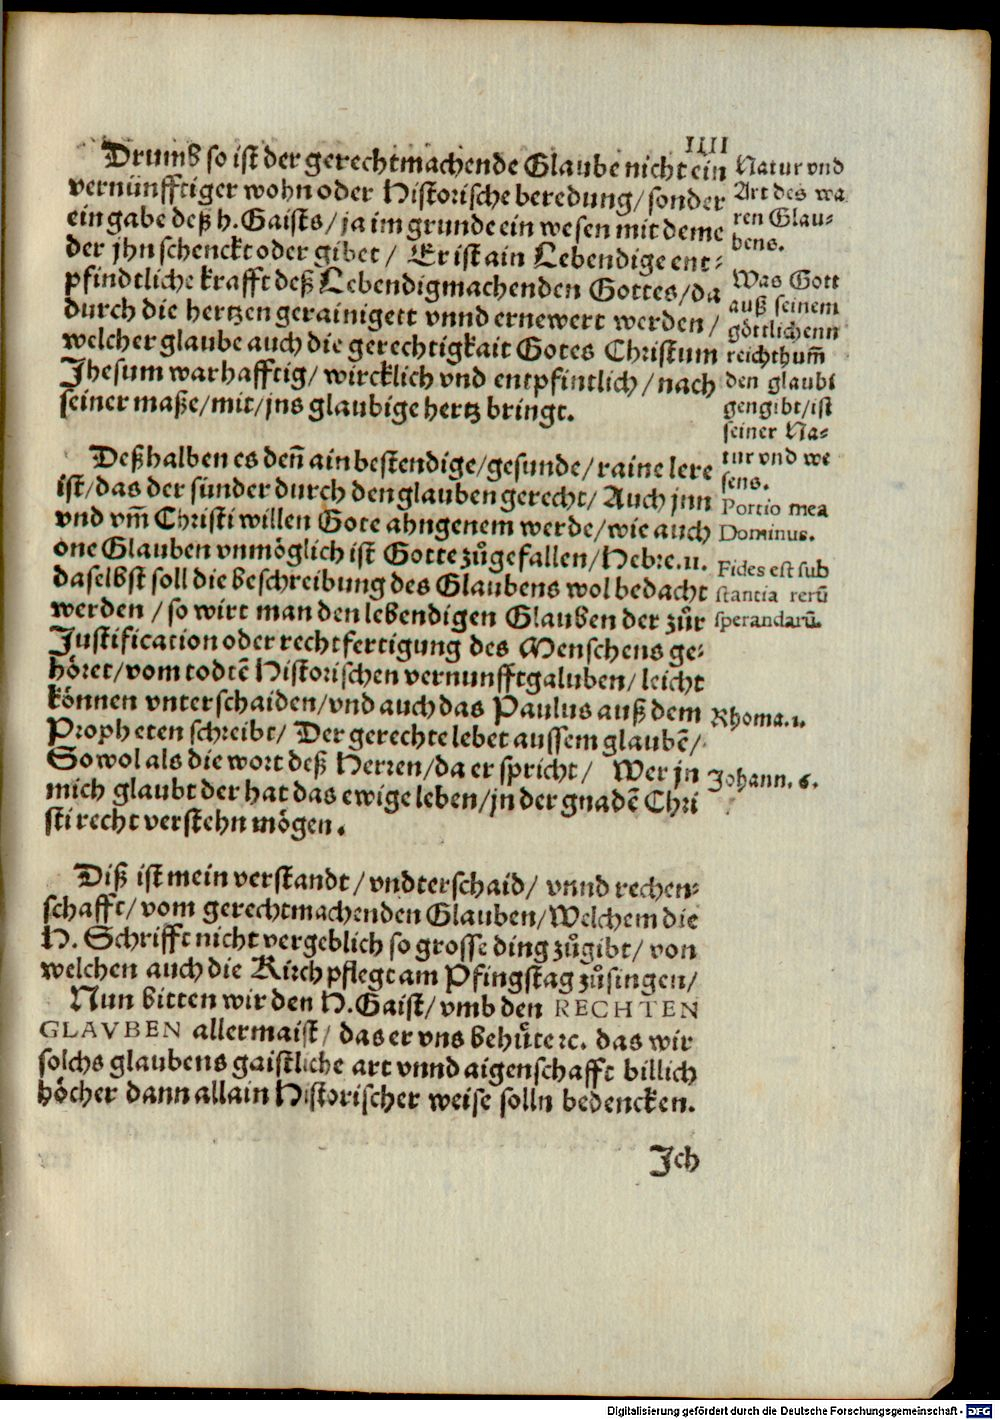 IIII
Drumb so ist der gerechtmachende Glaube nicht ein
vernünfftiger wohn oder Historische beredung/ sonder
ein gabe deß h. Gaists/ ja im grunde ein wesen mit deme
der jhn schenckt oder gibet/ Er ist ain Lebendige ent-
pfindtliche krafft deß Lebendigmachenden Gottes/ da
durch die hertzen gerainigett vnnd ernewert werden/
welcher glaube auch die gerechtigkait Gotes Christum
Jhesum warhafftig/ wircklich vnd entpfintlich/ nach
seiner maße/ mit/ jns glaubige hertz bringt.
Natur vnd
Art des wa
ren Glau-
bens.
Was Gott
auß seinem
göttlichenn
reichthum̃
den glaubi
gen gibt/ ist
seiner Na-
tur vnd we
sens.
Portio mea
Dominus.
Deßhalben es den̄ ain bestendige/ gesunde/ raine lere
ist/ das der sünder durch den glauben gerecht/ Auch jnn
vnd vm̃ Christi willen Gote ahngenem werde/ wie auch
one Glauben vnmöglich ist Gotte zůgefallen/ Hebre. 11.
daselbst soll die beschreibung des Glaubens wol bedacht
werden/ so wirt man den lebendigen Glauben der zůr
Justification oder rechtfertigung des Menschens ge-
höret/ vom todtē Historischen vernunfftgaluben/ leicht
können vnterschaiden/ vnd auch das Paulus auß dem
Propheten schreibt/ Der gerechte lebet aussem glaubē/
So wol als die wort deß Herren/ da er spricht/ Wer jn
mich glaubt der hat das ewige leben/ jn der gnadē Chri
sti recht verstehn mögen.
Fides est sub
stantia rerū
sperandarū.
Rhoma. 1.
Johann. 6.
Diß ist mein verstandt/ vndterschaid/ vnnd rechen-
schafft/ vom gerechtmachenden Glauben/ Welchem die
H. Schrifft nicht vergeblich so grosse ding zůgibt/ von
welchen auch die Kirch pflegt am Pfingstag zůsingen/
Nun bitten wir den H. Gaist/ vmb den RECHTEN
GLAVBEN allermaist/ das er vns behůte ꝛc. das wir
solchs glaubens gaistliche art vnnd aigenschafft billich
höcher dann allain Historischer weise solln bedencken.
Ich
Digitalisierung gefördert durch die Deutsche Forschungsgemeinschaft - DFG